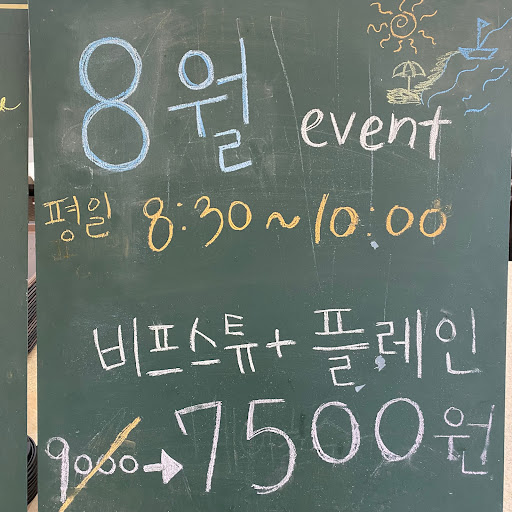 8월 event
평일 8:30~10:00
비프스튜+플레인
9000→7500원